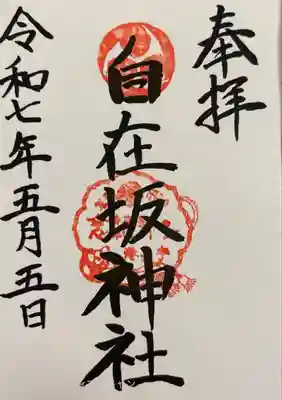 奉拝
自在坂神社
令和七年五月五日